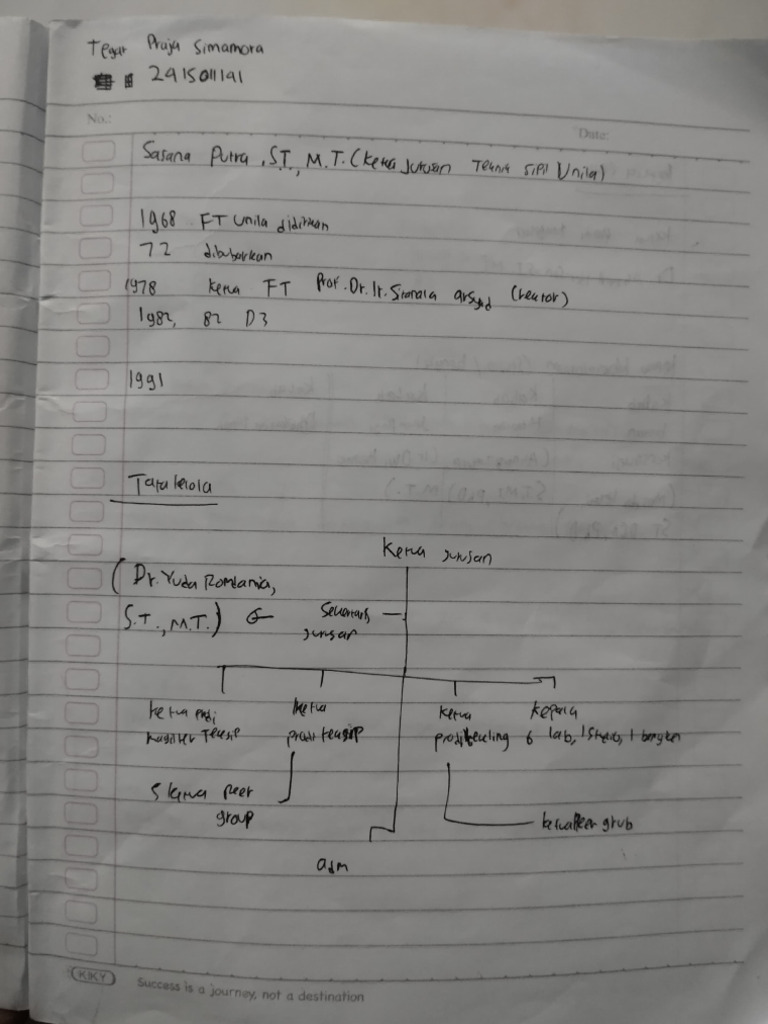 Tegar Praja Simamora
2415011141
No.:
Date:
Sasana Putra, S.T., M.T. (Ketua Jurusan Teknik Sipil Unila)
1968 FT Unila didirikan
72 dibubarkan
1978 Ketua FT Prof. Dr. Ir. Sitanala Arsyad (rektor)
1982, 82 D3
1991
Tata kelola
Ketua Jurusan
(Dr. Yuda Romdania,
S.T., M.T.) ← Sekertaris
jurusan
Ketua prodi
magister Teksip
Ketua
prodi teksip
Ketua
prodi tekling
Kepala
6 lab, 1 studio, 1 bengkel
5 ketua peer
group
ketua peer grub
adm
KIKY
Success is a journey, not a destination